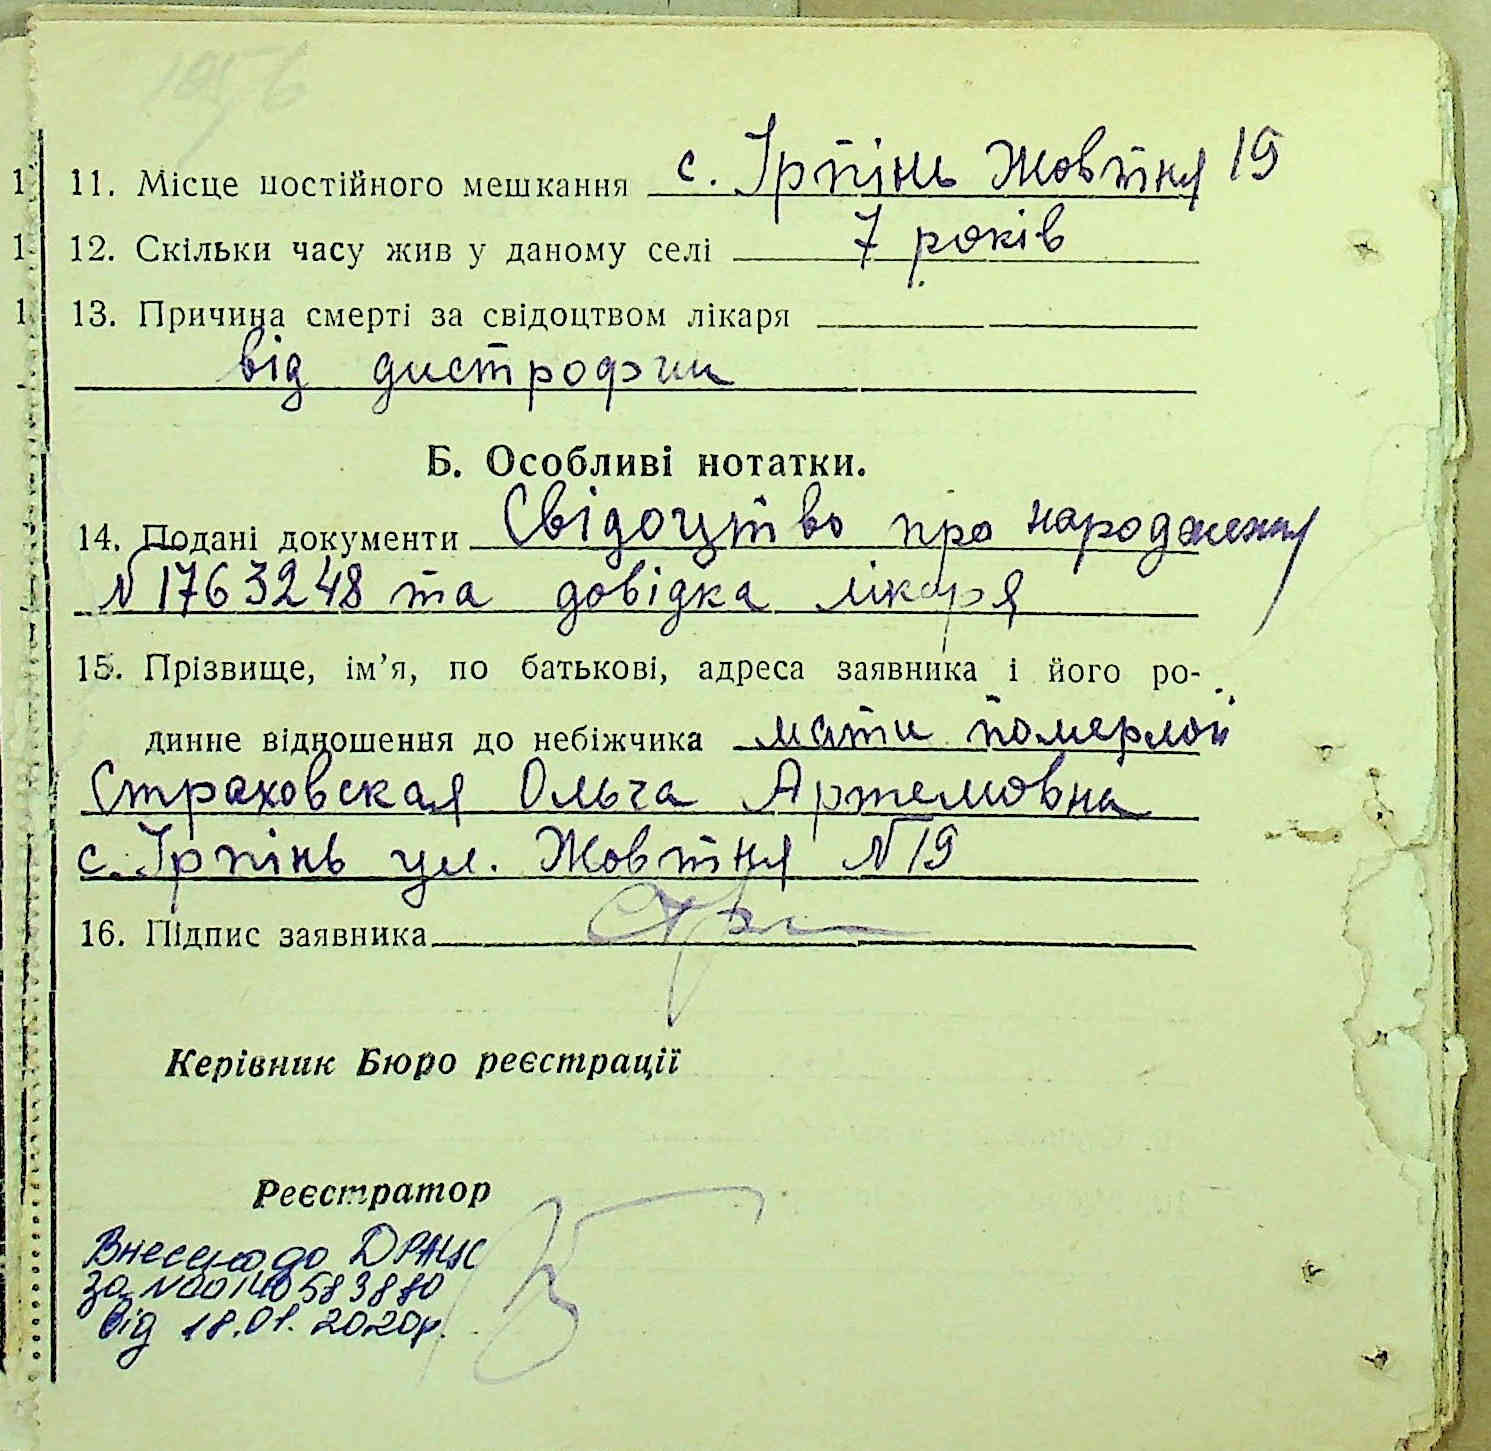 11. Місце постійного мешкання с. Ірпінь Жовтня 19
12. Скільки часу жив у даному селі 7 років
13. Причина смерті за свідоцтвом лікаря
від дистрофии
Б. Особливі нотатки.
14. Подані документи Свідоцтво про народження
N 1763248 та довідка лікаря
15. Прізвище, ім’я, по батькові, адреса заявника і його ро-
динне відношення до небіжчика мати померлой
Страховская Ольга Артемовна
с. Ірпінь ул. Жовтня N 19
16. Підпис заявника
Керівник Бюро реєстрації
Реєстратор
Внесено до ДРАЦС
за N00140583880
від 18.01.2020р.